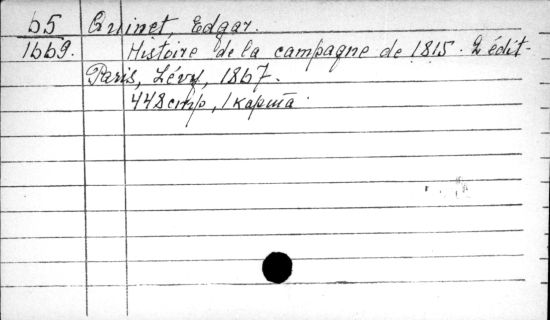 65 Quinet, Edgar.
1669. Histoire de la campagne de 1815. 2 édit-
Paris, Lévy, 1867.
448 стр, 1 карта.